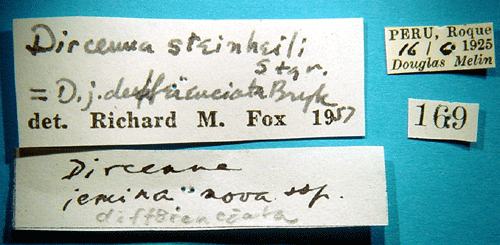 Dircenna steinheili
Stgr.
= D. j. differenciata Bryk
det. Richard M. Fox 1957
Dircenna
jemina nova ssp.
differenciata
PERU, Roque
16/6 1925
Douglas Melin
169